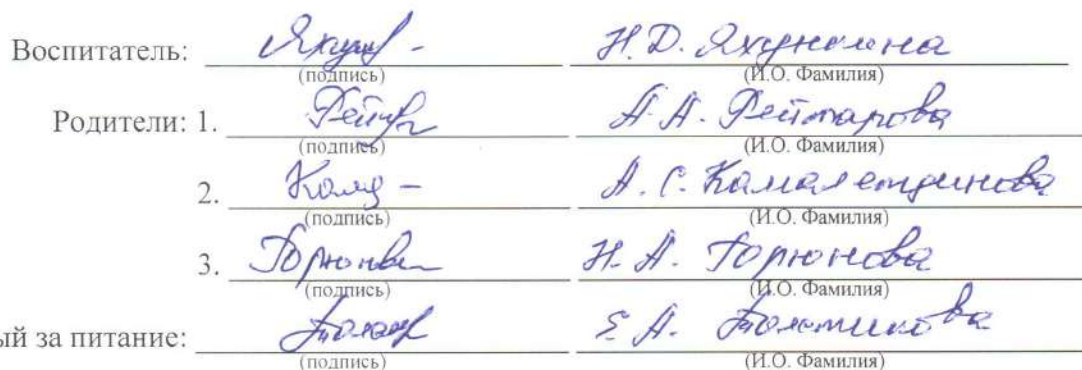 Воспитатель: Н.Д. Яхункина
(подпись) (И.О. Фамилия)
Родители: 1. А.А. Рейтарова
(подпись) (И.О. Фамилия)
2. А.С. Камалетдинова
(подпись) (И.О. Фамилия)
3. Горюнова Н.А. Горюнова
(подпись) (И.О. Фамилия)
ый за питание: Е.А. Толстикова
(подпись) (И.О. Фамилия)